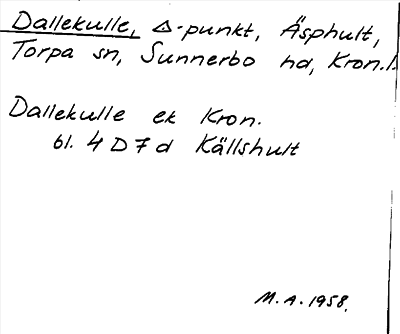 Dallekulle, △-punkt, Äsphult,
Torpa sn, Sunnerbo hd, Kron.l.
Dallekulle ek Kron.
bl. 4 D 7 d Källshult
M.A. 1958.